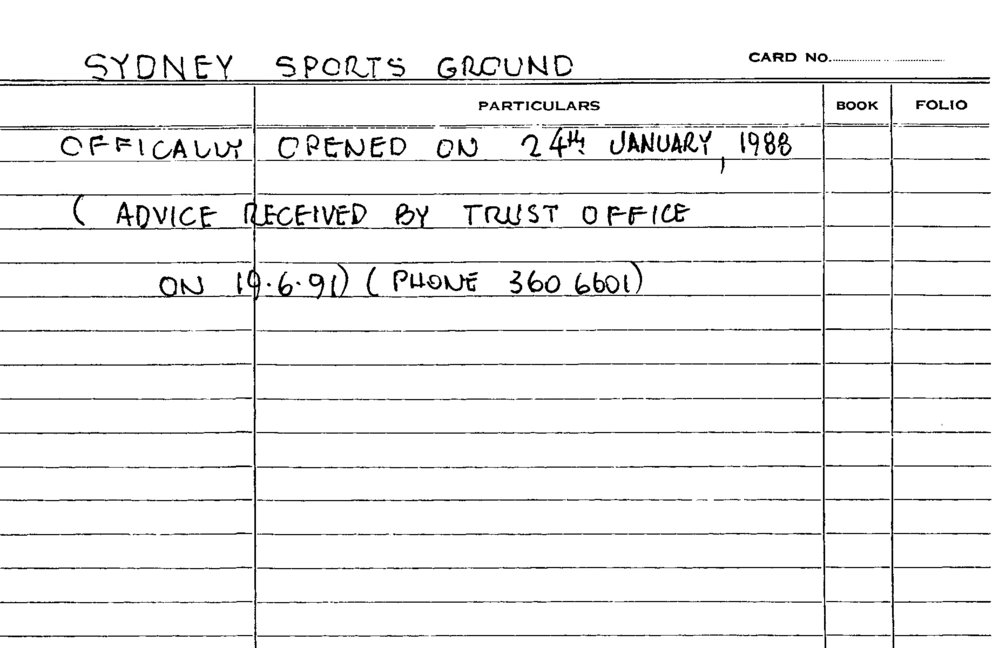 SYDNEY SPORTS GROUND CARD No.
PARTICULARS BOOK FOLIO
OFFICALLY OPENED ON 24th JANUARY, 1988
( ADVICE RECEIVED BY TRUST OFFICE
ON 19.6.91) ( PHONE 360 6601)